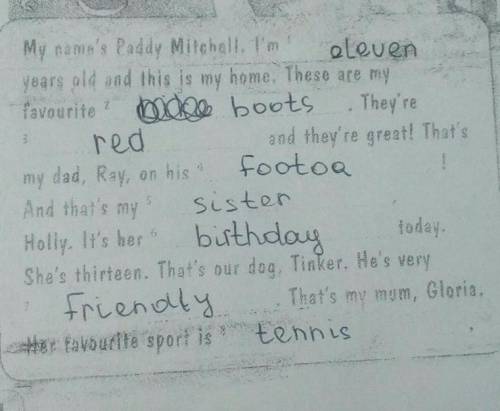 My name's Paddy Mitchell. I'm 1 eleven
years old and this is my home. These are my
favourite 2 boots . They're
3 red and they're great! That's
my dad, Ray, on his 4 footoa !
And that's my 5 sister ,
Holly. It's her 6 birthday today.
She's thirteen. That's our dog, Tinker. He's very
7 friendly . That's my mum, Gloria.
Her favourite sport is 8 tennis .